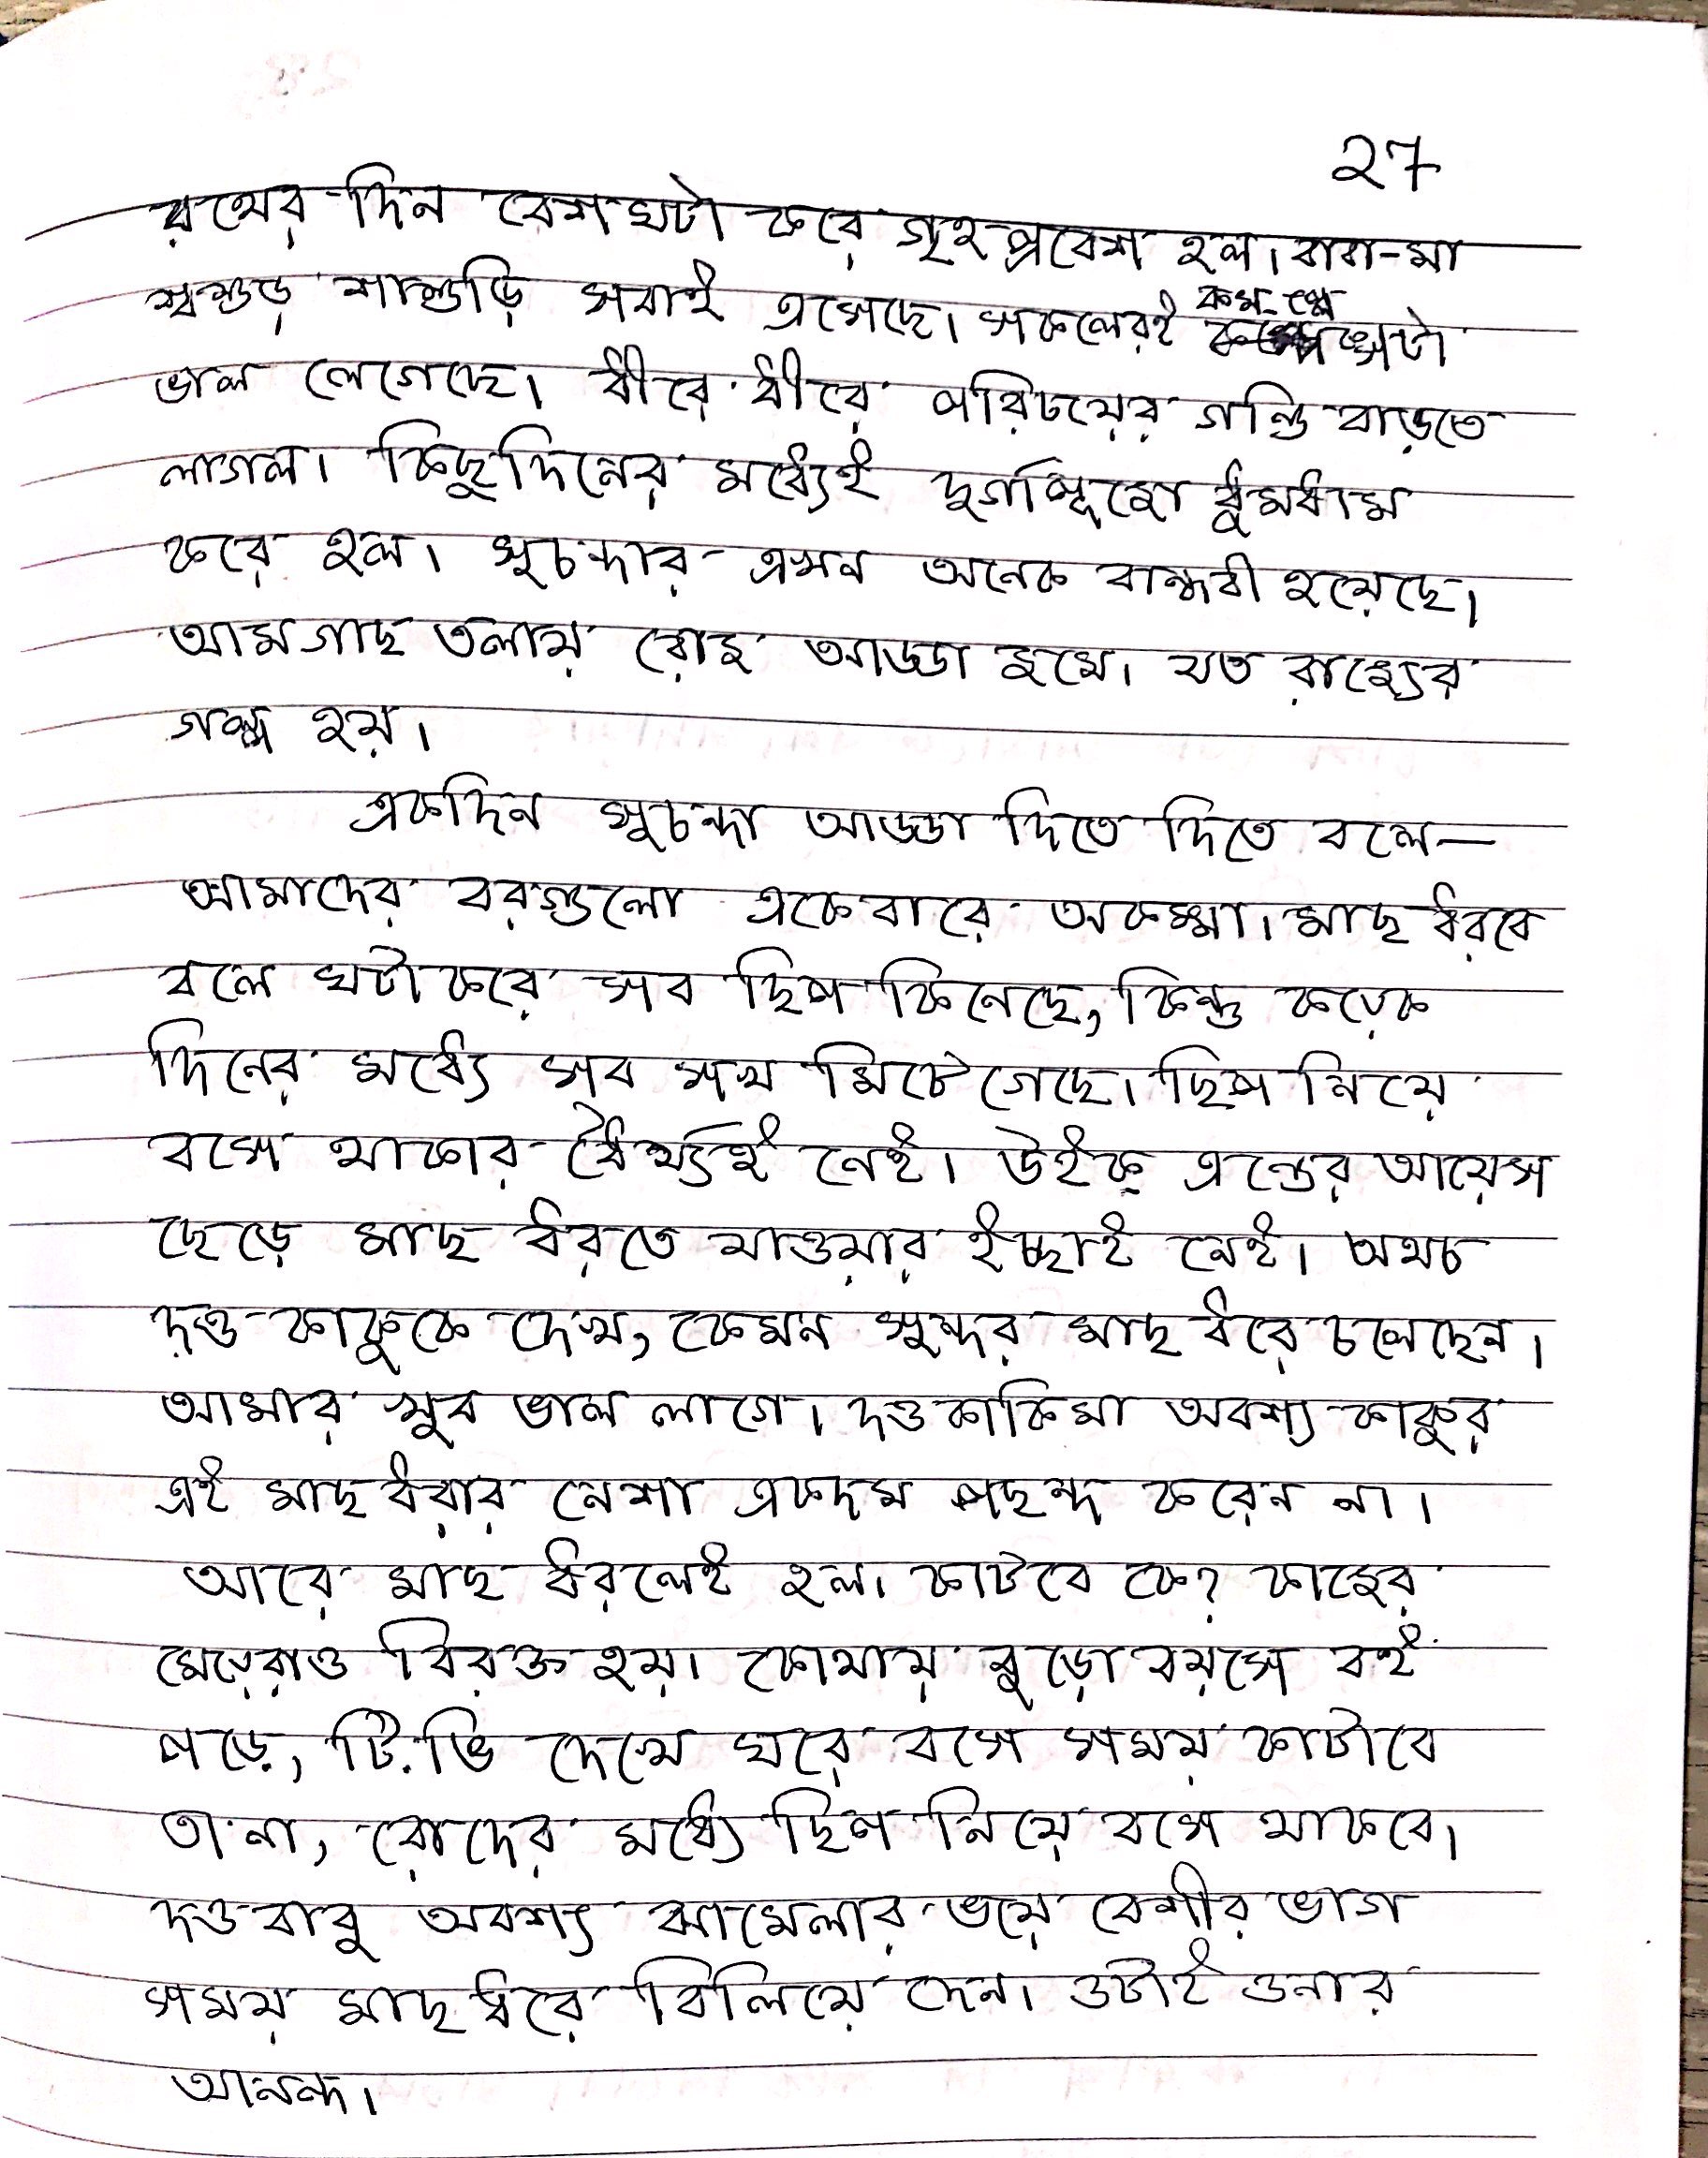 ২7
রথের দিন বেশ ঘটা করে গৃহপ্রবেশ হল। বাবা-মা
শ্বশুড় শাশুড়ি সবাই এসেছে। সকলেরই কমপ্লেক্সটা
ভাল লেগেছে। ধীরে ধীরে পরিচয়ের গন্ডি বাড়তে
লাগল। কিছুদিনের মধ্যেই দুর্গাপূজো ধুমধাম
করে হল। সুচন্দার এখন অনেক বান্ধবী হয়েছে।
আমগাছ তলায় রোজ আড্ডা জমে। যত রাজ্যের
গল্প হয়।
একদিন সুচন্দা আড্ডা দিতে দিতে বলে—
আমাদের বরগুলো একেবারে অকম্মা। মাছ ধরবে
বলে ঘটা করে সব ছিপ কিনেছে, কিন্তু কয়েক
দিনের মধ্যে সব সখ মিটে গেছে। ছিপ নিয়ে
বসে থাকার ধৈর্য্যই নেই। উইক্ এন্ডের আয়েস
ছেড়ে মাছ ধরতে যাওয়ার ইচ্ছাই নেই। অথচ
দত্ত কাকুকে দেখ, কেমন সুন্দর মাছ ধরে চলেছেন।
আমার খুব ভাল লাগে। দত্তকাকিমা অবশ্য কাকুর
এই মাছ ধরার নেশা একদম পছন্দ করেন না।
আরে মাছ ধরলেই হল। কাটবে কে? কাজের
মেয়েরাও বিরক্ত হয়। কোথায় বুড়ো বয়সে বই
পড়ে, টি.ভি দেখে ঘরে বসে সময় কাটাবে
তা না, রোদের মধ্যে ছিপ নিয়ে বসে থাকবে।
দত্তবাবু অবশ্য ঝামেলার ভয়ে বেশীর ভাগ
সময় মাছ ধরে বিলিয়ে দেন। ওটাই ওনার
আনন্দ।